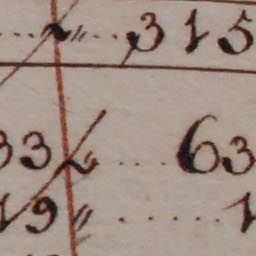 〃 ... 315
33 〃 .... 63
19 〃 ...... 1